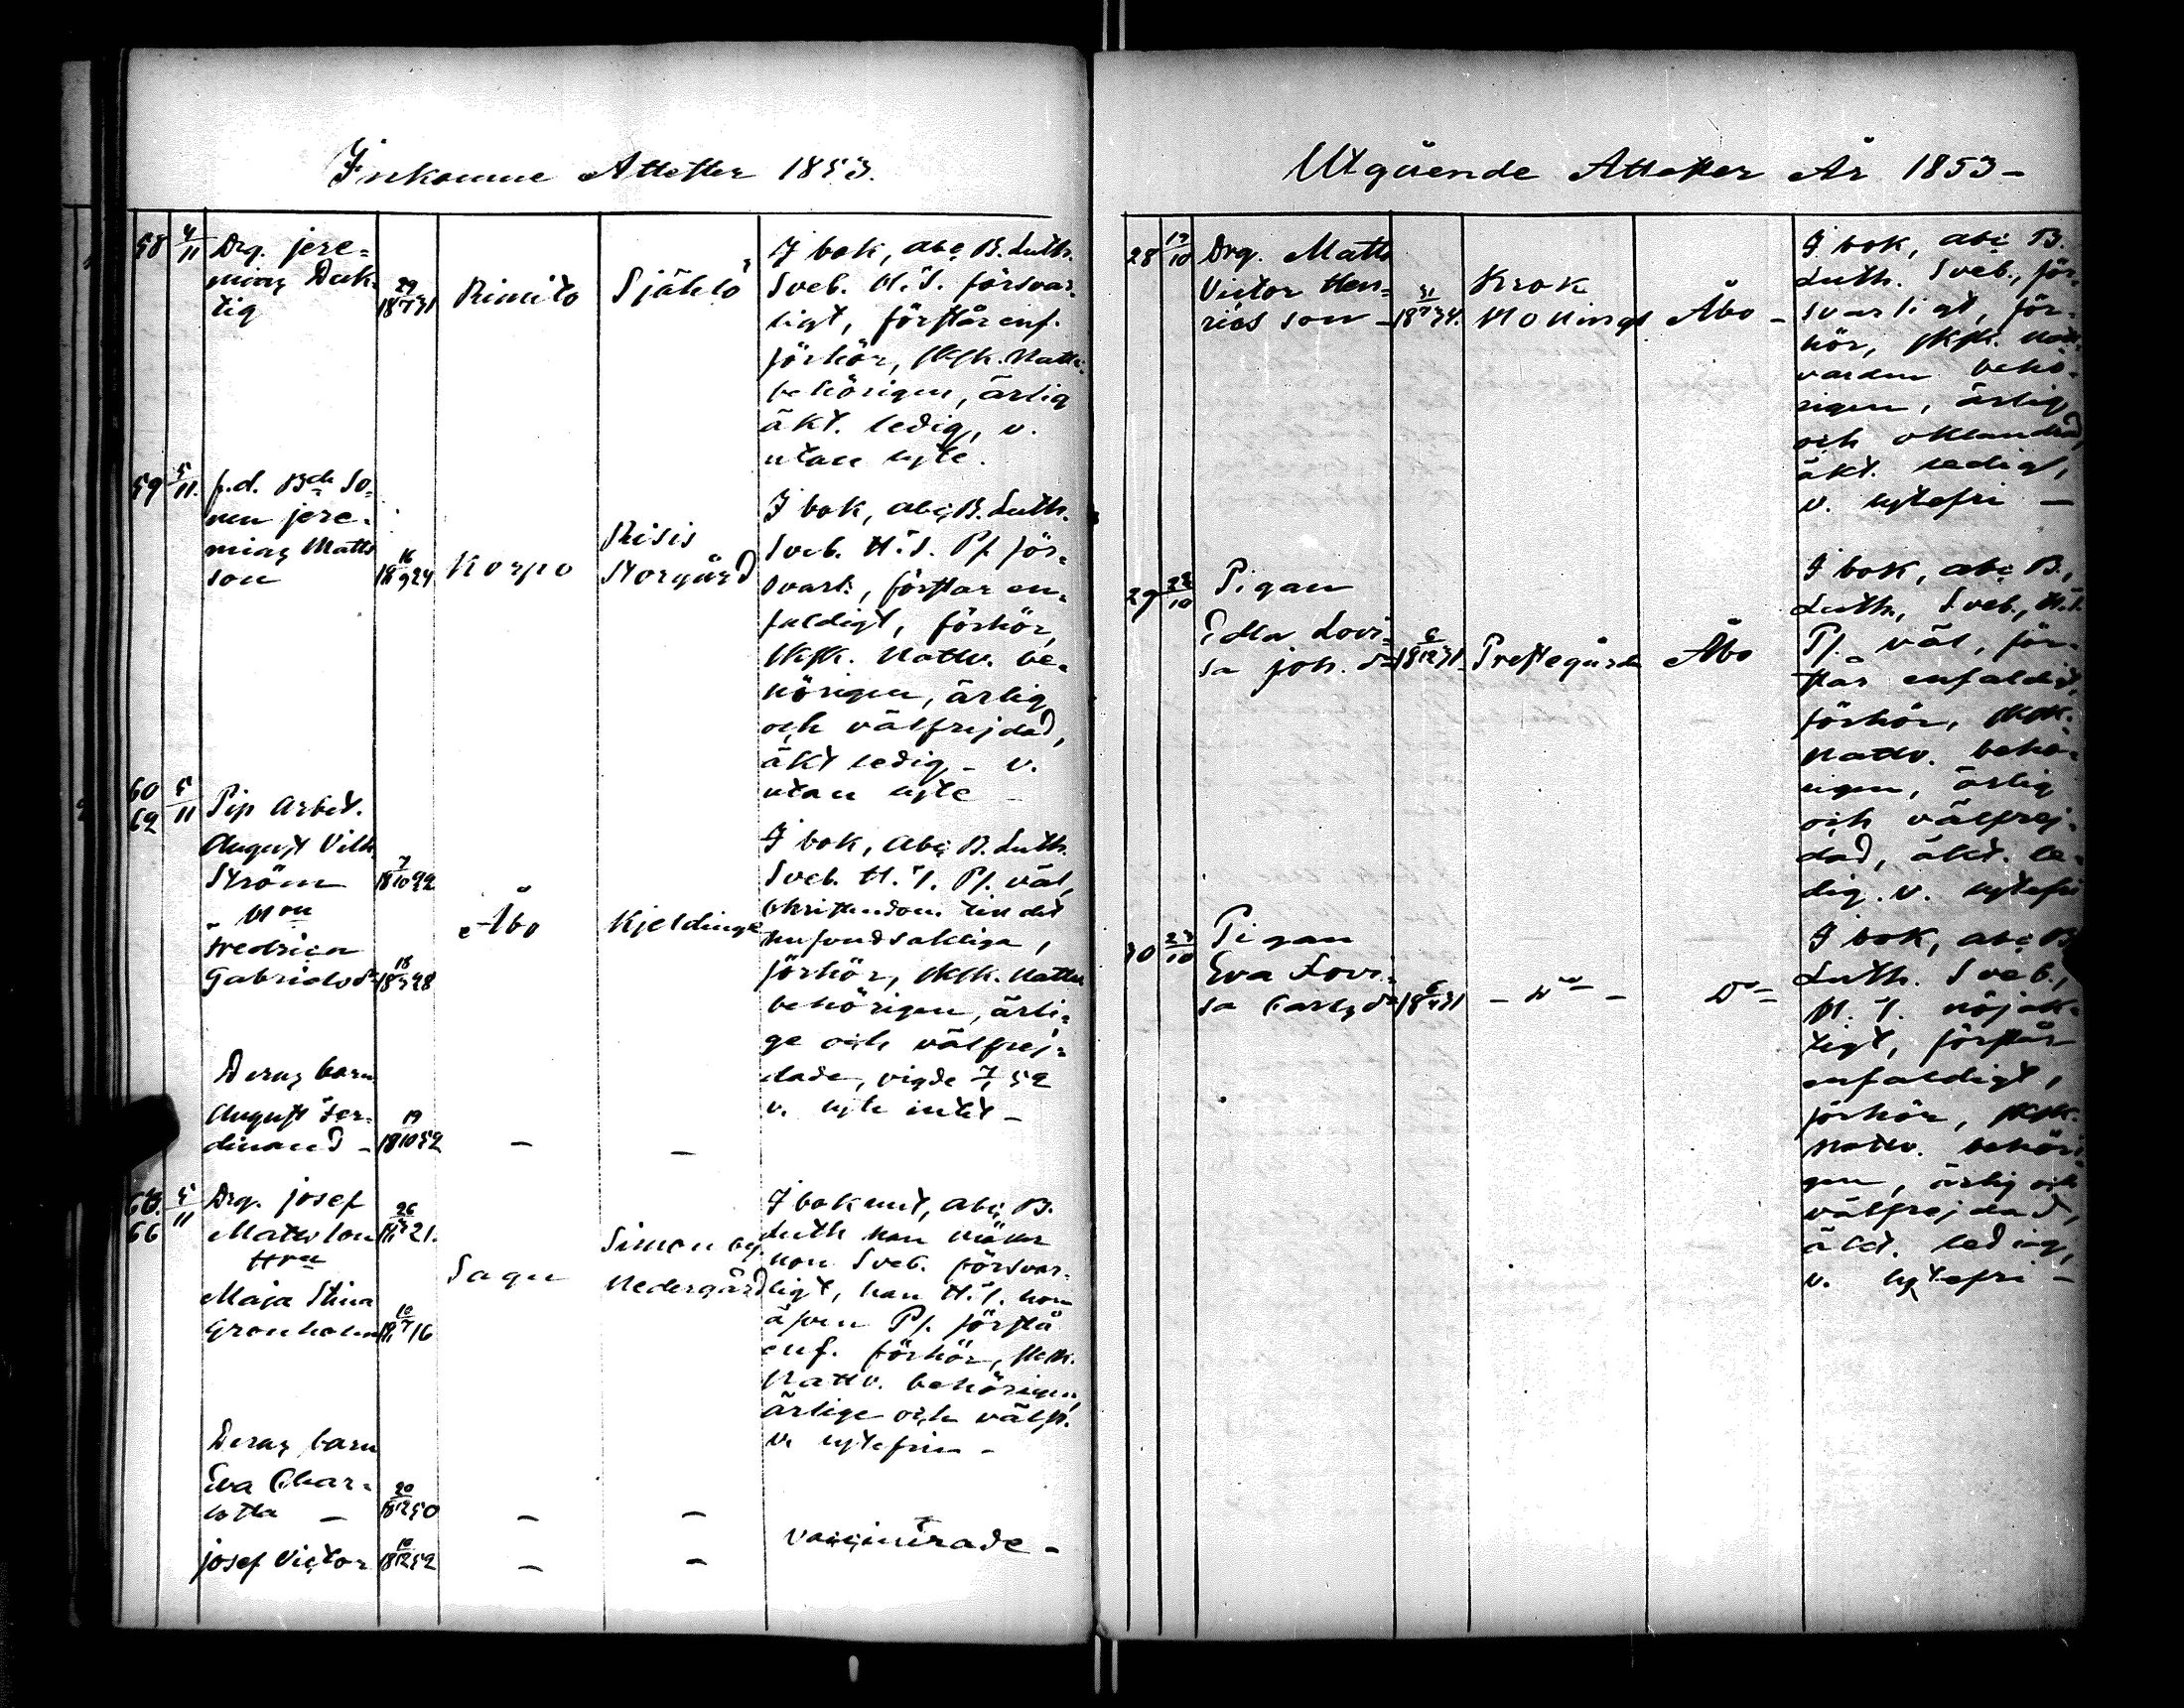 Inkomne Attester 1853.
58 4/11 Drg. jere=
mias Duk=
tig
29/7 1831
Rimito
Själö
I bok, abc, B. Luth.
Sveb. H. T. försvar=
ligt, förstår enf.
förhör, skrk. nattv.
behörigen, ärlig
äkt. ledig, v.
utan lyte.
59 5/11. f.d. Bde So=
nen jere=
mias Matts
son
16/9 1824
Korpo
Risis
Storgård
I bok, abc, B. Luth.
Sveb. H. T. Ps. för=
svarl., förstår en=
faldigt, förhör,
skrk. nattv. be=
hörigen, ärlig
och välfrejdad,
äkt ledig - v.
utan lyte -
60
62
5/11 Pip arbet.
August Vilh.
Ström
7/10 1822
Hon
Fredrica
Gabrielsdr
18/3 1828
Åbo
Kjeldinge
I bok, abc, B. Luth.
Sveb. H. T. Ps. väl,
christendom till det
hufvudsakliga,
förhör, skrk. nattv
behörigen, ärli=
ge och välfrej=
dade, vigde 52
v. lyte intet -
Deras barn
August Fer=
dinand -
19/10 1852
-
-
63.
66
5/11 Drg. josef
Mattsson
21.
Hon
Maja Stina
Gronholm
16
Sagu
Simonby
Nedergård
I bok mit, abc, B.
Luth han nöker
hon Sveb. försvar=
ligt, han H. T. hon
äfven Ps. förstå
enf. förhör, skrk.
nattv. behörigen,
ärlige och välfr.
v. lytefrie -
Deras barn
Eva Char=
lotta -
20/12 1850
-
-
josef Victor
10/12 1852
-
-
vaccinerade -
Utgående Attester År 1853 -
28 19/10 Drg. Matts
Victor Hen=
rics son -
31/7 1834.
Krok
Åbo -
I bok, abc B.
Luth. Sveb., för=
svarligt, för=
hör, skrk. natt
varden behö=
rigen, ärlig
och oklandrad,
äkt. ledig,
v. lytefri -
29 22/10 Pigan
Edla Lovi=
sa joh. dr
6/12 1831
Prestegård
Åbo
I bok, abc B.,
Luth., Sveb., H. T.
Ps. väl, för=
står enfaldigt,
förhör, skrk.
nattv. behö=
rigen, ärlig
och välfrej=
dad, äkt. le=
dig. v. lytefri
30 23/10 Pigan
Eva Lovi=
sa Carlsdr
1831
- Do -
Do
I bok, abc B
Luth. Sveb.,
H. T. nöjak=
tigt, förstår
enfaldigt,
förhör, skrk.
nattv. behöri=
gen, ärlig och
välfrejdad,
äkt. ledig,
v. lytefri -